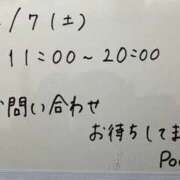 /7(土)
11:00～20:00
お問い合わせ
お待ちしてま